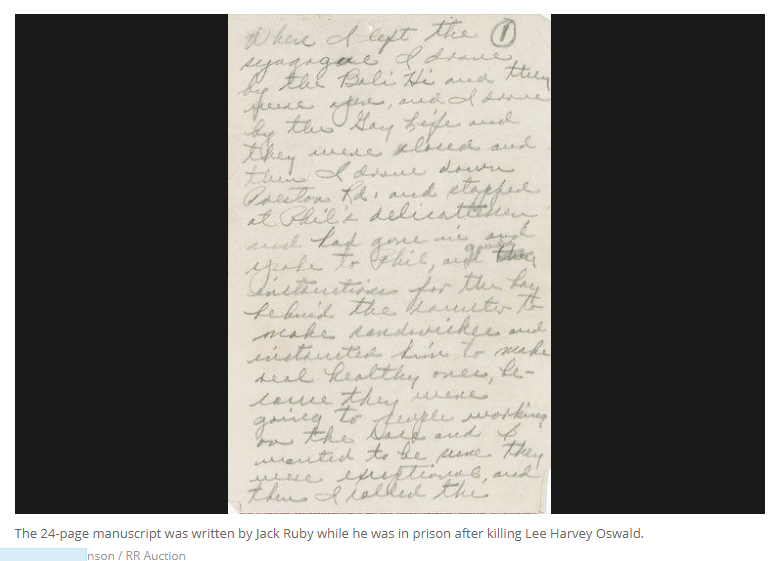 When I left the ①
synagogue I drove
by the Bali Hi and they
were open, and I drove
by the Gay Life and
they were closed and
then I drove down
Preston Rd. and stopped
at Phil's delicattessen
and had gone in and
spoke to Phil, and gave
instructions for the boy
behind the counter to
make sandwiches and
instructed him to make
real healthy ones, be-
cause they were
going to people working
on the case and I
wanted to be sure they
were exceptional, and
then I called the
The 24-page manuscript was written by Jack Ruby while he was in prison after killing Lee Harvey Oswald.
nson / RR Auction